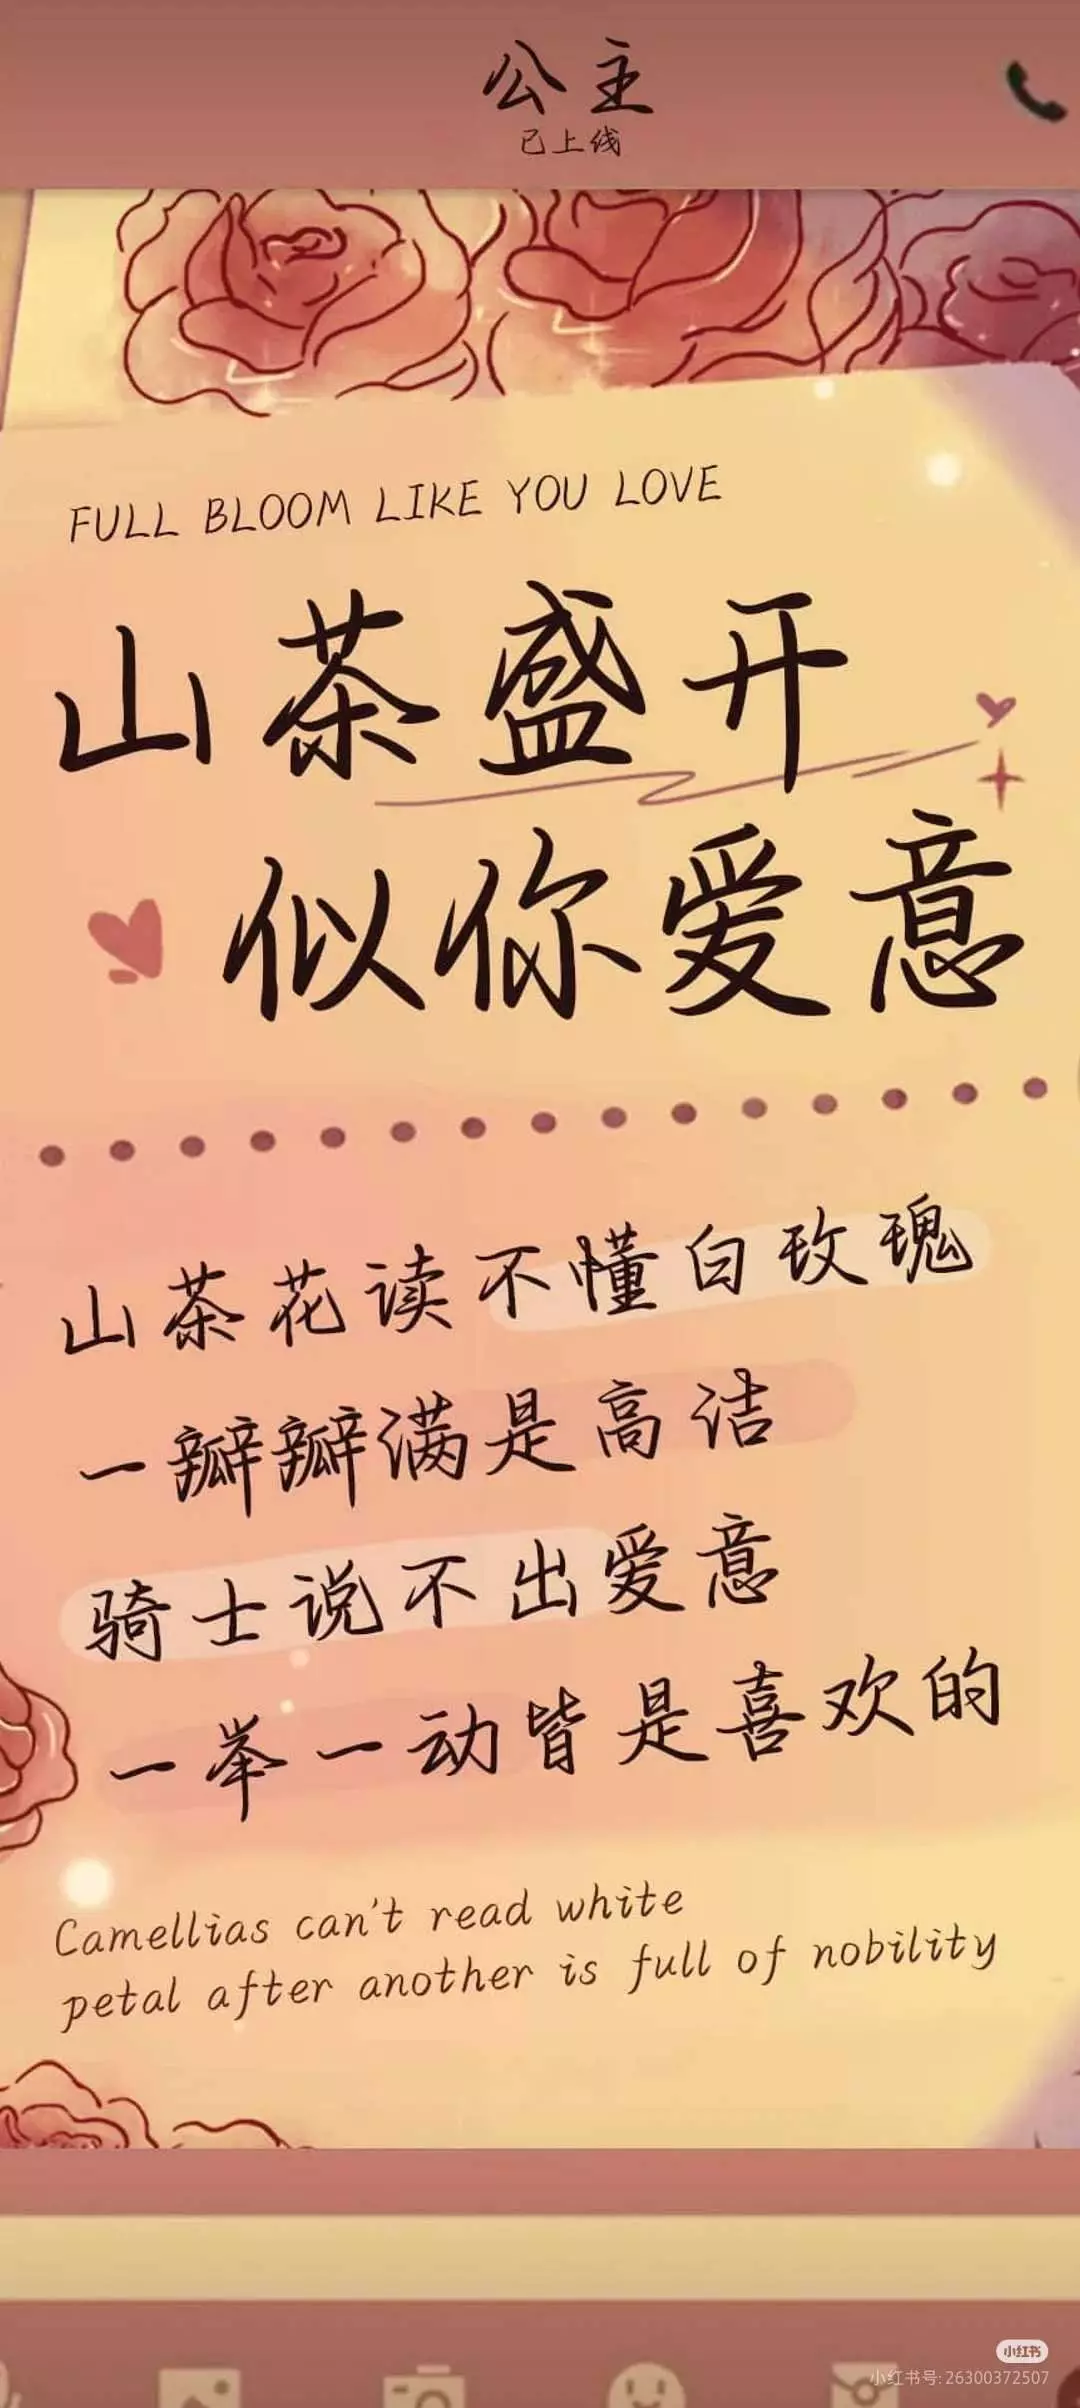 公主
已上线
FULL BLOOM LIKE YOU LOVE
山茶盛开
似你爱意
山茶花读不懂白玫瑰
一瓣瓣满是高洁
骑士说不出爱意
一举一动皆是喜欢的
Camellias can't read white
petal after another is full of nobility
小红书
小红书号: 26300372507